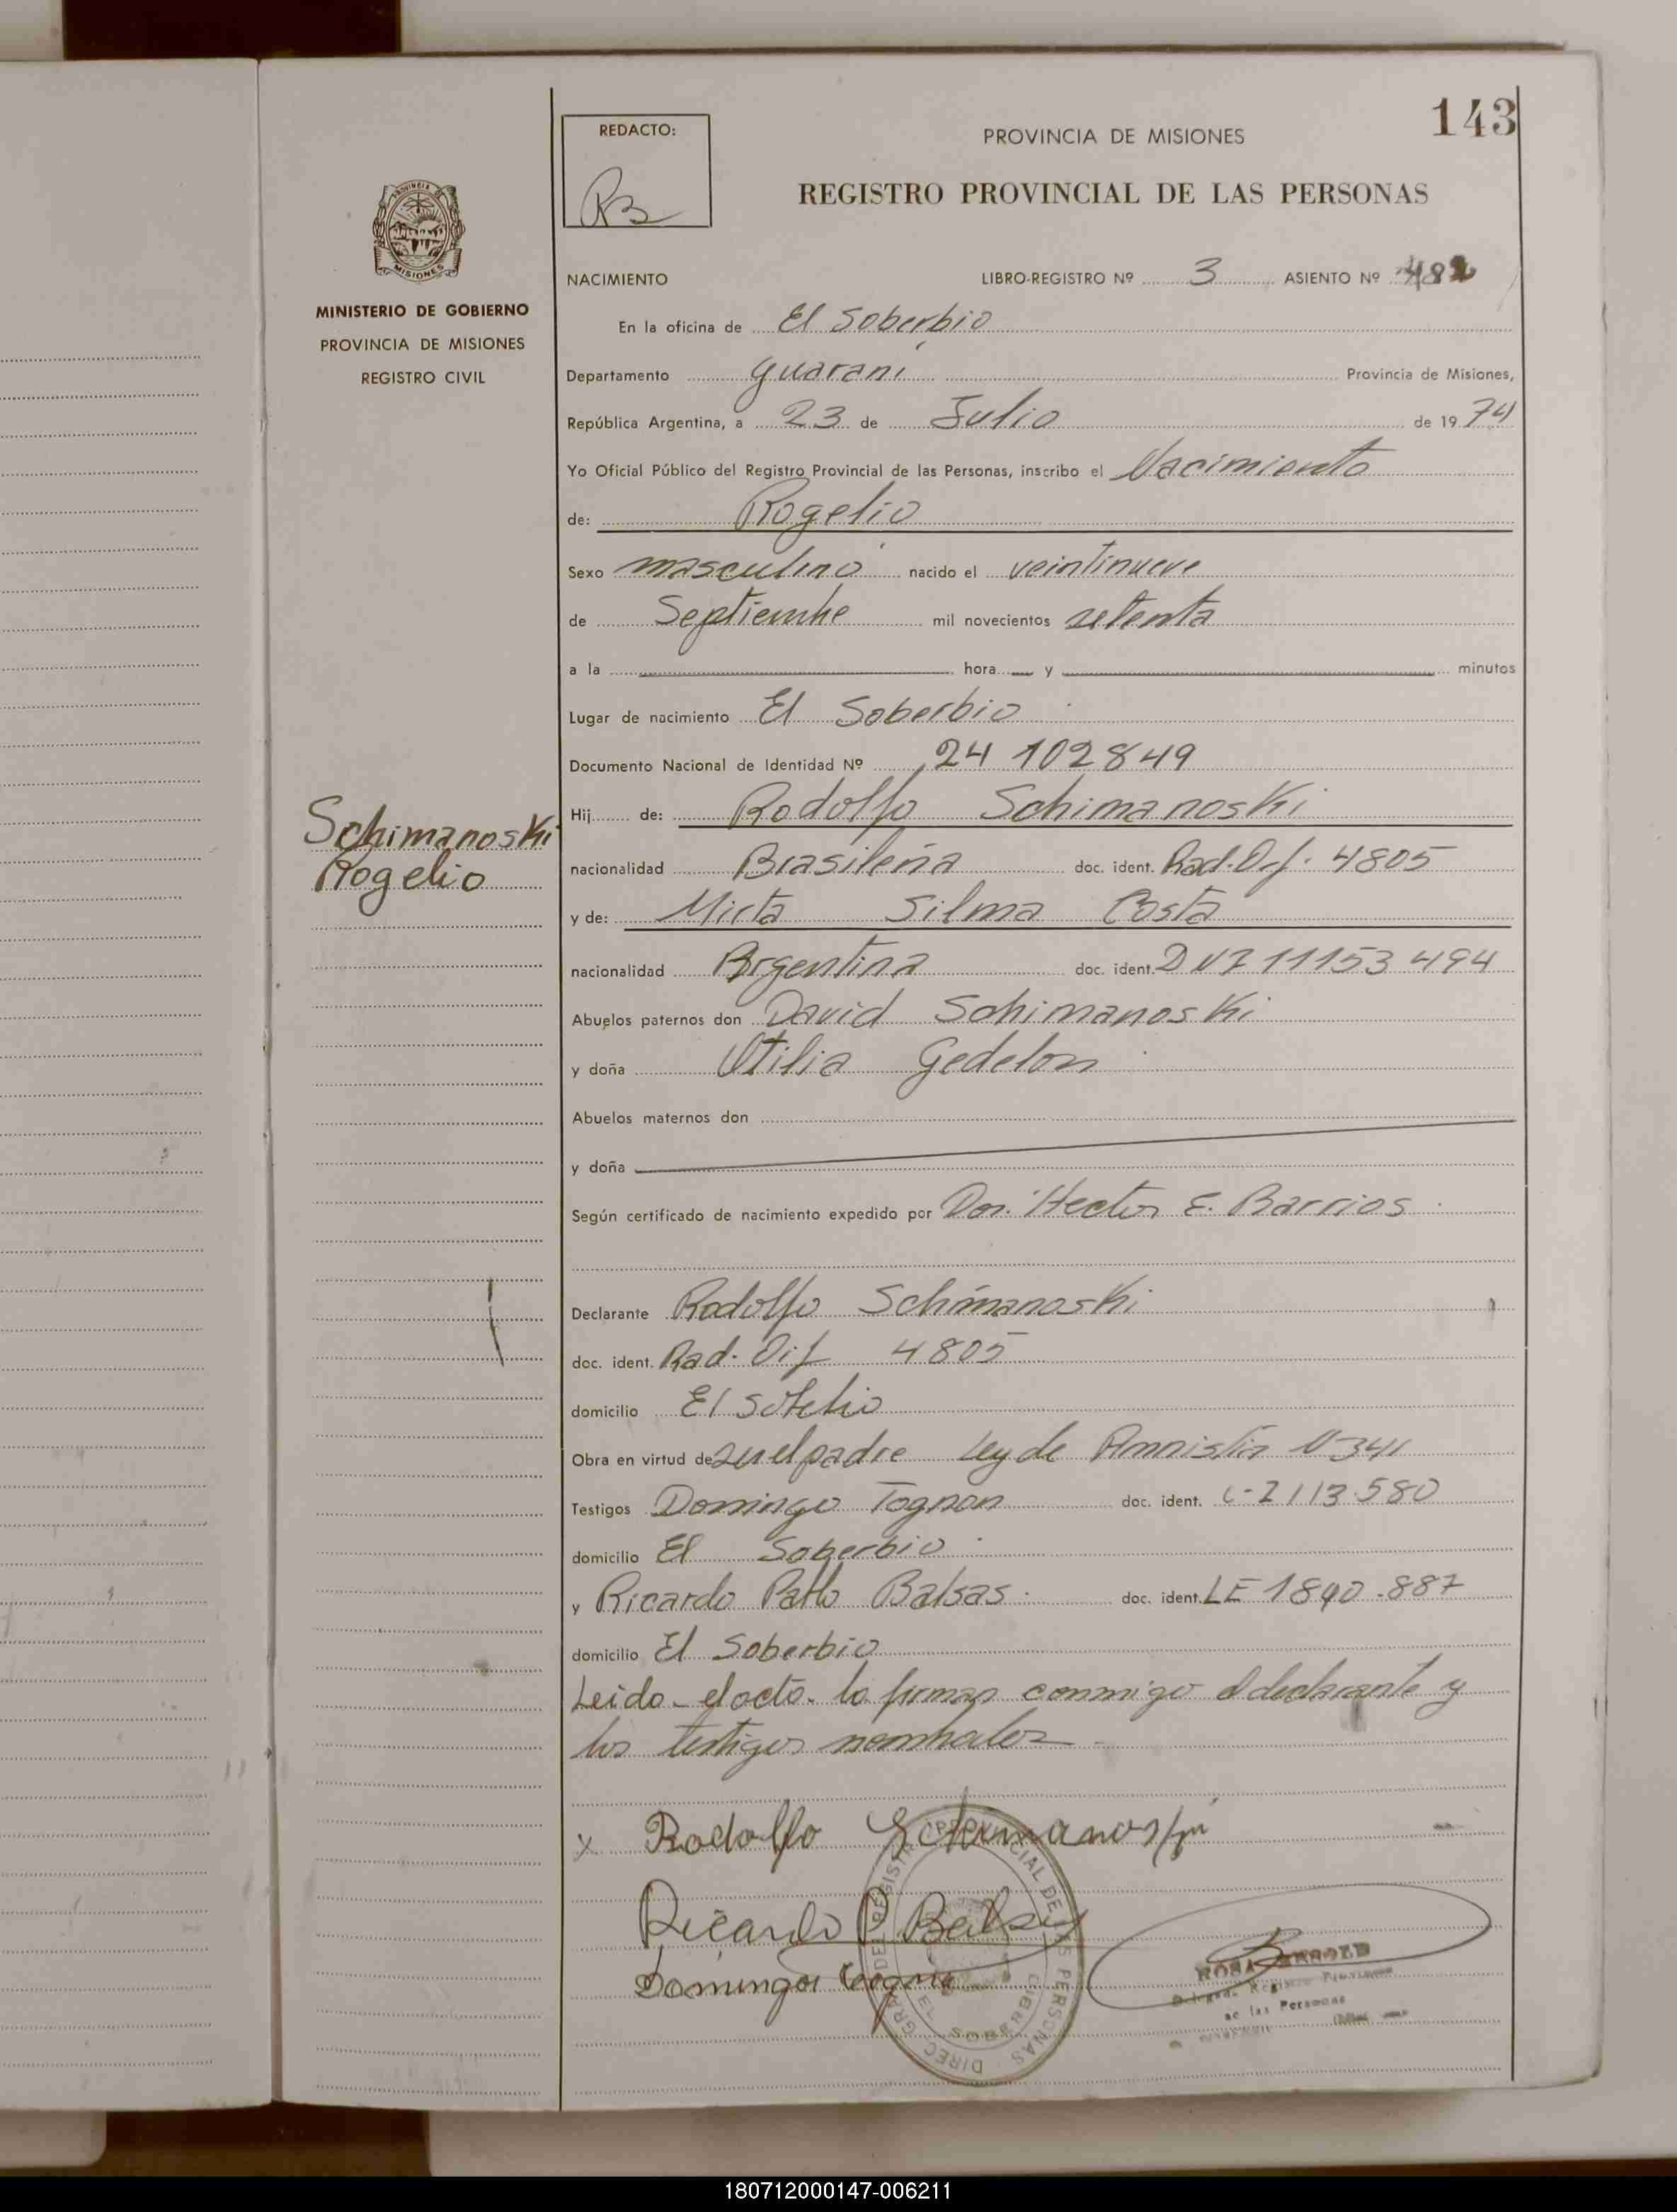 143
REDACTO:
PROVINCIA DE MISIONES
RB
REGISTRO PROVINCIAL DE LAS PERSONAS
PROVINCIA
MISIONES
MINISTERIO DE GOBIERNO
PROVINCIA DE MISIONES
REGISTRO CIVIL
NACIMIENTO LIBRO-REGISTRO Nº 3 ASIENTO Nº
En la oficina de El Soberbio
Departamento Guaraní Provincia de Misiones,
República Argentina, a 23 de Julio de 1974
Yo Oficial Público del Registro Provincial de las Personas, inscribo el Nacimiento
de: Rogelio
Sexo masculino nacido el veintinueve
de Septiembre mil novecientos setenta
a la hora y minutos
Lugar de nacimiento El Soberbio
Documento Nacional de Identidad Nº 24 102849
Schimanoski
Rogelio
Hij de: Rodolfo Schimanoski
nacionalidad Brasileña doc. ident. Rad. Def. 4805
y de: Mirta Silma Costa
nacionalidad Argentina doc. ident. DNI 11153494
Abuelos paternos don David Schimanoski
y doña Otilia Gedelon
Abuelos maternos don
y doña
Según certificado de nacimiento expedido por Dor. Hector E. Barrios
Declarante Rodolfo Schimanoski
doc. ident. Rad. Dif 4805
domicilio El
Obra en virtud de ser el padre Ley de Amnistía N 341
Testigos Domingo Tognon doc. ident. C-I 113.580
domicilio El Soberbio
y Ricardo Pablo Balsas. doc. ident. LE 1840.887
domicilio El Soberbio
Leido el acto. lo firman conmigo el declarante y
los testigos nombrados
x Rodolfo Schimanoski
Ricardo P Balsas
Domingo Tognon
DIREC. GRAL. DEL REGISTRO PROVINCIAL DE LAS PERSONAS
EL SOBERBIO
ROSA
de las Personas
180712000147-006211